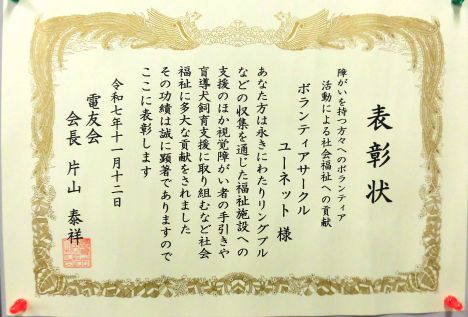 表彰状
障がいを持つ方々へのボランティア
活動による社会福祉への貢献
ボランティアサークル
ユーネット 様
あなた方は永きにわたりリングプル
などの収集を通じた福祉施設への
支援のほか視覚障がい者の手引きや
盲導犬飼育支援に取り組むなど社会
福祉に多大な貢献をされました
その功績は誠に顕著でありますので
ここに表彰します
令和七年十一月十二日
電友会
会長 片山 泰祥